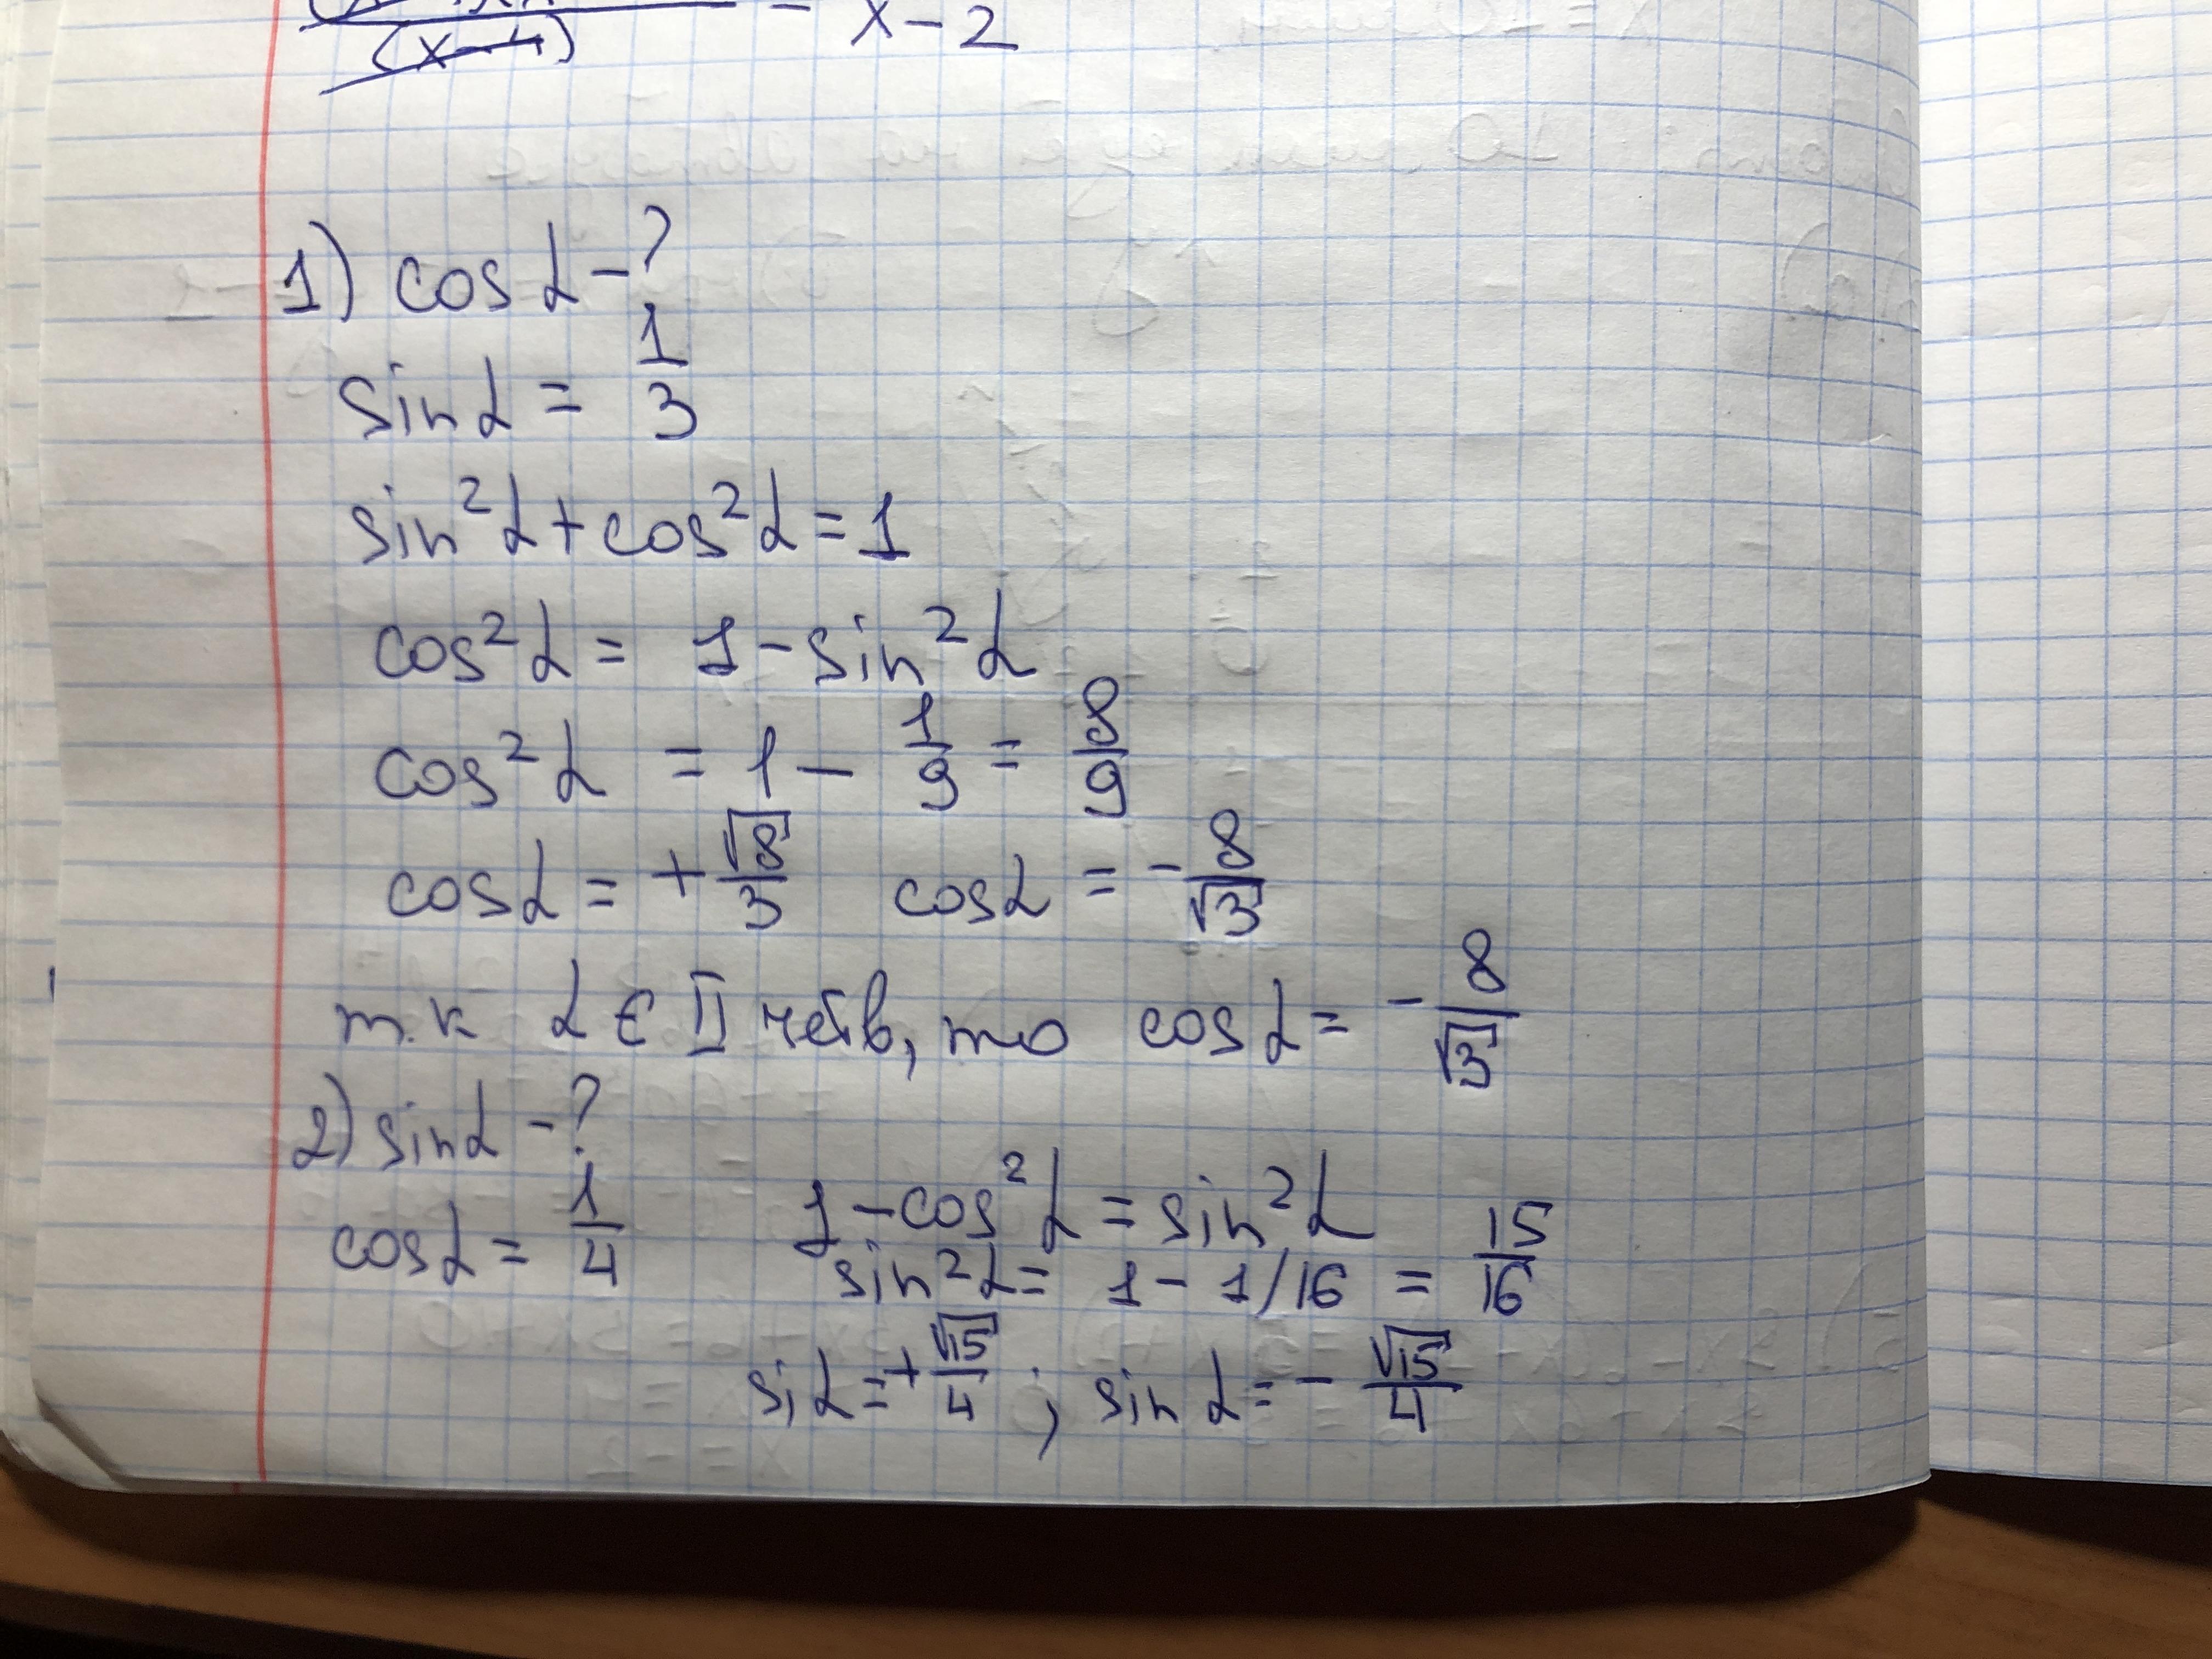 (x-4) - x-2
1) cos α - ?
sin α = 1/3
sin²α + cos²α = 1
cos²α = 1 - sin²α
cos²α = 1 - 1/9 = 8/9
cos α = + √8/3 cos α = - 8/√3
т.к α ∈ II четв, то cos α = - 8/√3
2) sin α - ?
cos α = 1/4 1 - cos²α = sin²α
sin²α = 1 - 1/16 = 15/16
si α = + √15/4 ; sin α = - √15/4